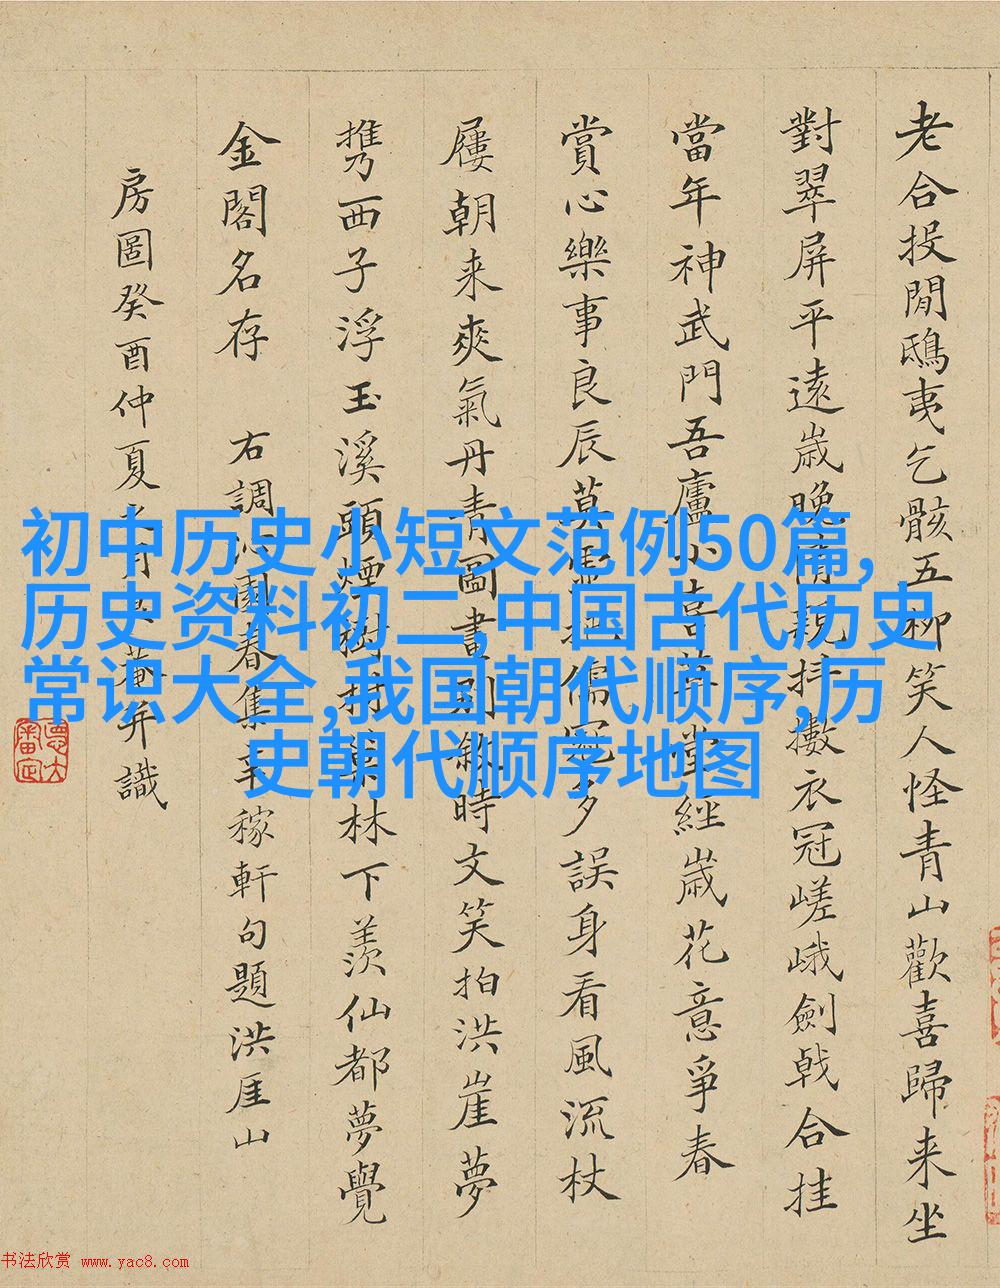 老合投閒鴟夷乞骸五柳笑人怪青山歡喜歸来坐
對翠屏平遠歲晚情親抖擻衣冠嵯峨劍戟合挂
當年神武門吾廬小喜草堂經歲花意爭春
賞心樂事良辰莫儒冠多誤身看風流杖
屨朝来爽氣丹青圖畫別敘時文笑拍洪崖夢
携西子浮玉溪頭煙樹村葉林下羨仙都夢覺
金閣名存 右調沁園春集辛稼軒句題洪厓山
房圖癸酉仲夏之月菴并識
初中历史小短文范例50篇,
历史资料初二,中国古代历史
常识大全,我国朝代顺序,历
史朝代顺序地图
书法欣赏 www.yac8.com